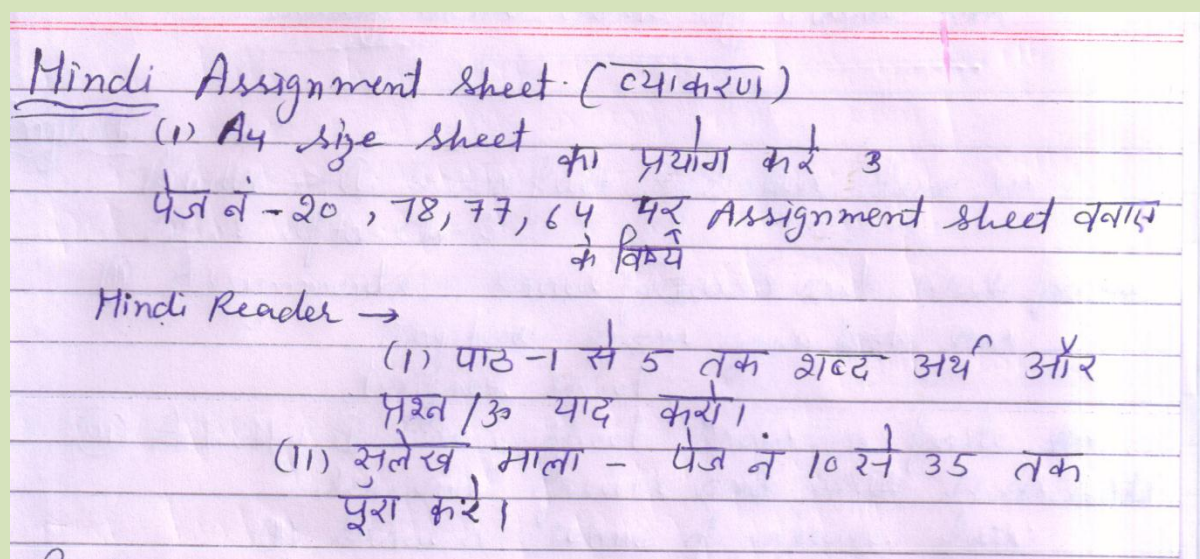 Hindi Assignment sheet (व्याकरण)
(1) A4 size sheet का प्रयोग करे
पेज नं - 20, 78, 77, 64 पर Assignment sheet बनाए
के विषय
Hindi Reader →
(1) पाठ -1 से 5 तक शब्द अर्थ और
प्रश्न /उ याद करो।
(11) सुलेख माला - पेज नं 10 से 35 तक
पूरा करे।